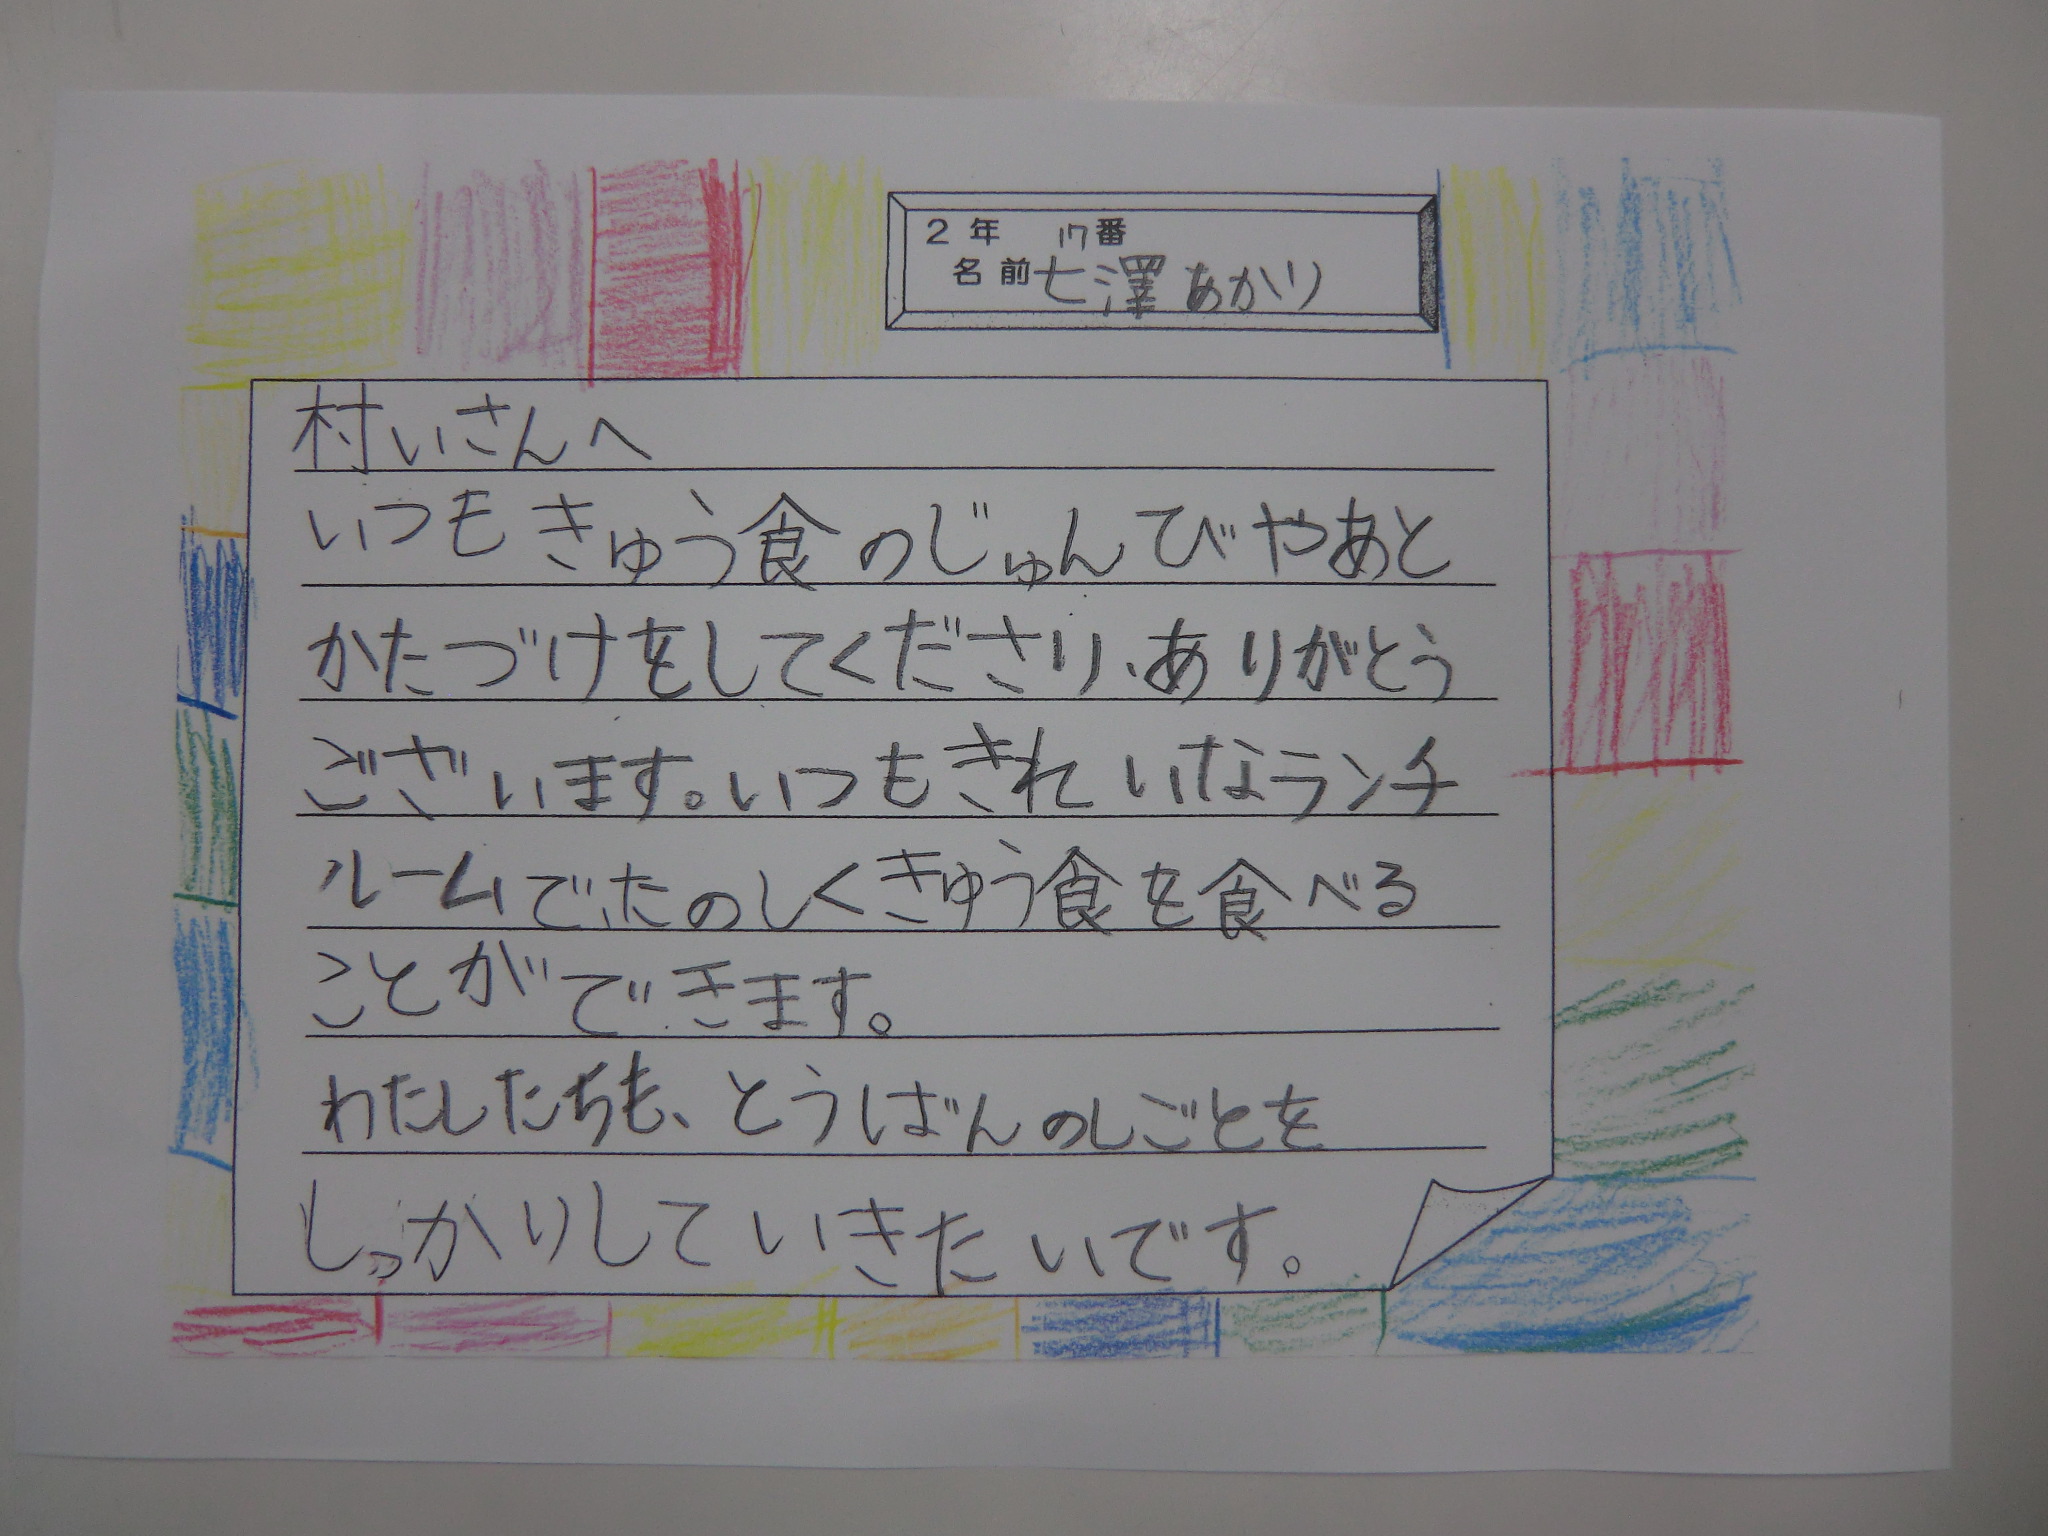 2年 17番
名前 七澤あかり
村いさんへ
いつもきゅう食のじゅんびやあと
かたづけをしてくださり、ありがとう
ございます。いつもきれいなランチ
ルームで、たのしくきゅう食を食べる
ことができます。
わたしたちも、とうばんのしごとを
しっかりしていきたいです。